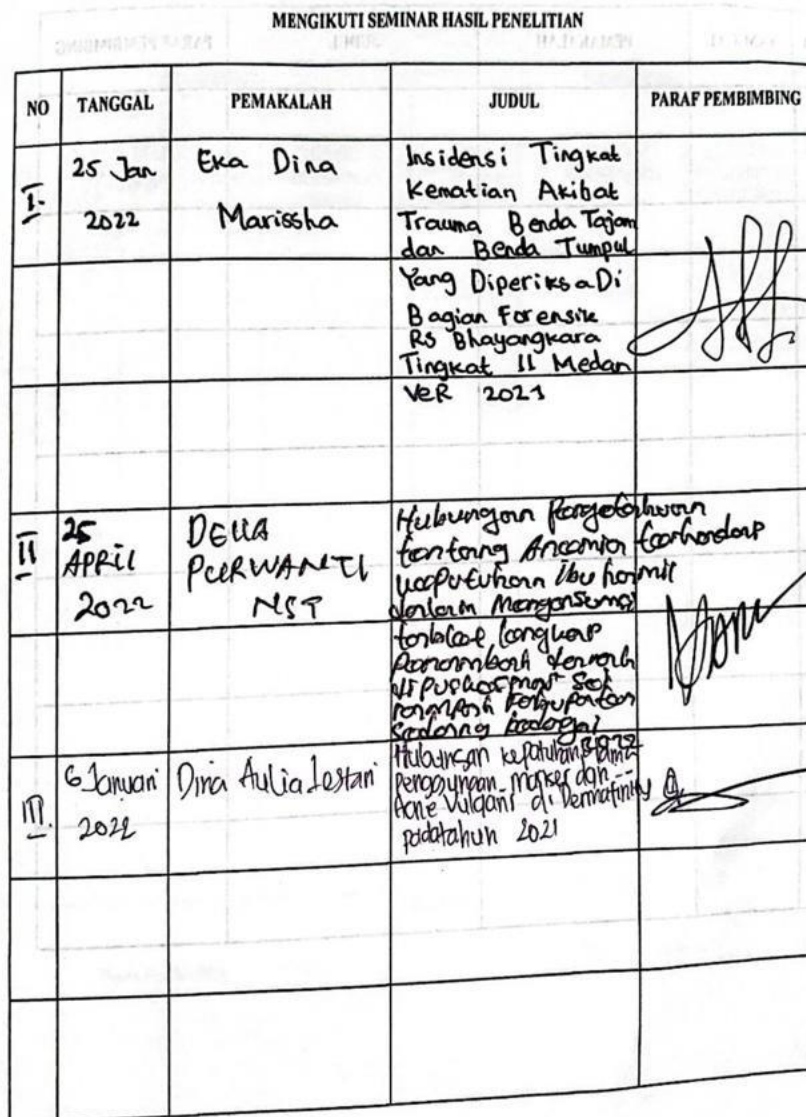 MENGIKUTI SEMINAR HASIL PENELITIAN
NO TANGGAL PEMAKALAH JUDUL PARAF PEMBIMBING
I. 25 Jan 2022 Eka Dina Marissha
Insidensi Tingkat
Kematian Akibat
Trauma Benda Tajam
dan Benda Tumpul
Yang Diperiksa Di
Bagian Forensik
RS Bhayangkara
Tingkat II Medan
VeR 2021
II 25 APRIL 2022 DELLA PURWANTI NST
Hubungan Pengetahuan
tentang Anemia terhadap
Ibu hamil
dalam
tablet
2022
III. 6 Januari 2022 Dina Aulia Lestari
Hubungan kepatuhan lama
penggunaan masker dan
Acne Vulgaris di Dermafinity
pada tahun 2021